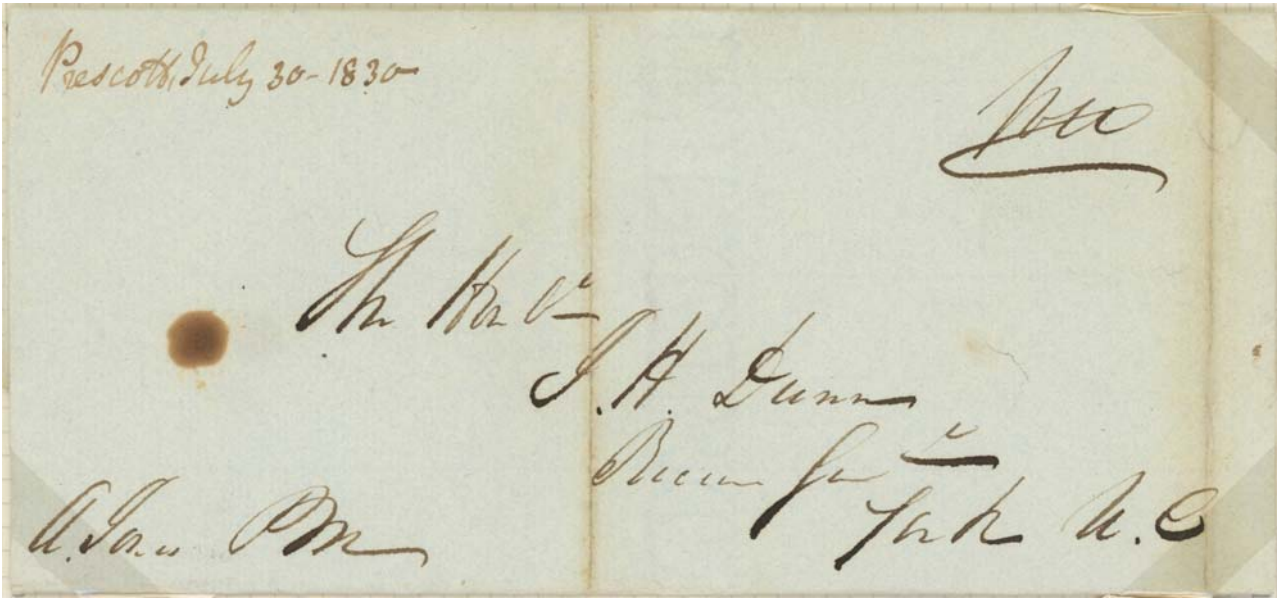 Prescott, July 30 - 1830
Free
The Honble
J. H. Dunn
Receiver Genl
York U.C
A. Jones PM